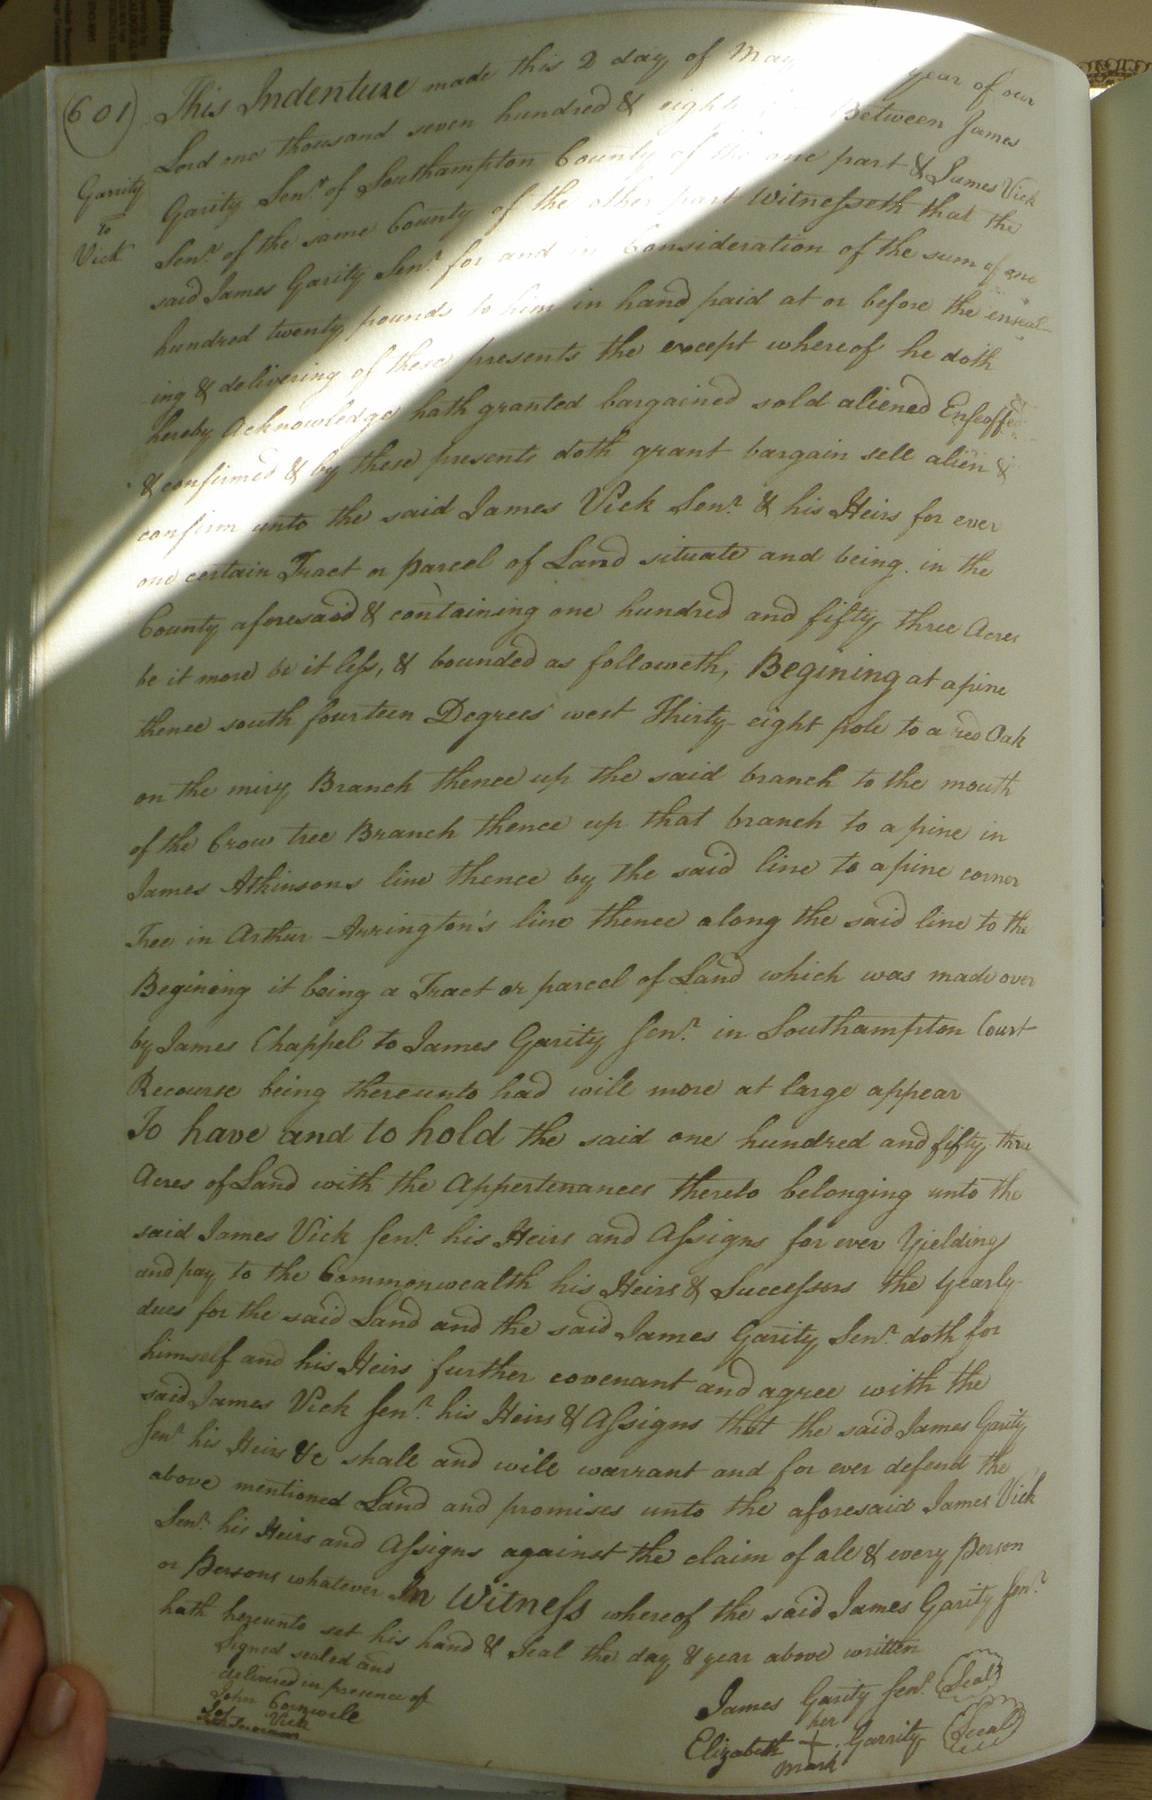 (601)
Garrity
to
Vick
This Indenture made this 2 day of May year of our
Lord one thousand seven hundred & eight Between James
Garity Senr. of Southampton County of the one part & James Vick
Senr. of the same County of the other part Witnesseth that the
said James Garity Senr. for and in Consideration of the sum of one
hundred twenty pounds to him in hand paid at or before the enseal-
ing & delivering of these presents the except whereof he doth
hereby Acknowledge hath granted bargained sold aliened Enfeoffed
& confirmed & by these presents doth grant bargain sell alien &
confirm unto the said James Vick Senr. & his Heirs for ever
one certain Tract or parcel of Land situate and being in the
County aforesaid & containing one hundred and fifty three Acres
be it more be it less, & bounded as followeth, Begining at a pine
thence south fourteen Degrees west Thirty-eight pole to a red Oak
on the miry Branch thence up the said branch to the mouth
of the Crow tree Branch thence up that branch to a pine in
James Atkinsons line thence by the said line to a pine corner
Tree in Arthur Arrington's line thence along the said line to the
Begining it being a Tract or parcel of Land which was made over
by James Chappel to James Garity Senr. in Southampton Court
Recourse being thereunto had will more at large appear
To have and to hold the said one hundred and fifty three
Acres of Land with the Appertenances thereto belonging unto the
said James Vick Senr. his Heirs and Assigns for ever Yielding
and pay to the Commonwealth his Heirs & Successors the yearly
dues for the said Land and the said James Garity Senr. doth for
himself and his Heirs further covenant and agree with the
said James Vick Senr. his Heirs & Assigns that the said James Garity
Senr. his Heirs &c shall and will warrant and for ever defend the
above mentioned Land and promises unto the aforesaid James Vick
Senr. his Heirs and Assigns against the claim of all & every Person
or Persons whatever In Witness whereof the said James Garity Senr.
hath hereunto set his hand & Seal the day & year above written
Signed sealed and
delivered in presence of
John Cornwele
Vick
James Garity Senr. (Seal)
her
Elizabeth + Garrity (Seal)
mark